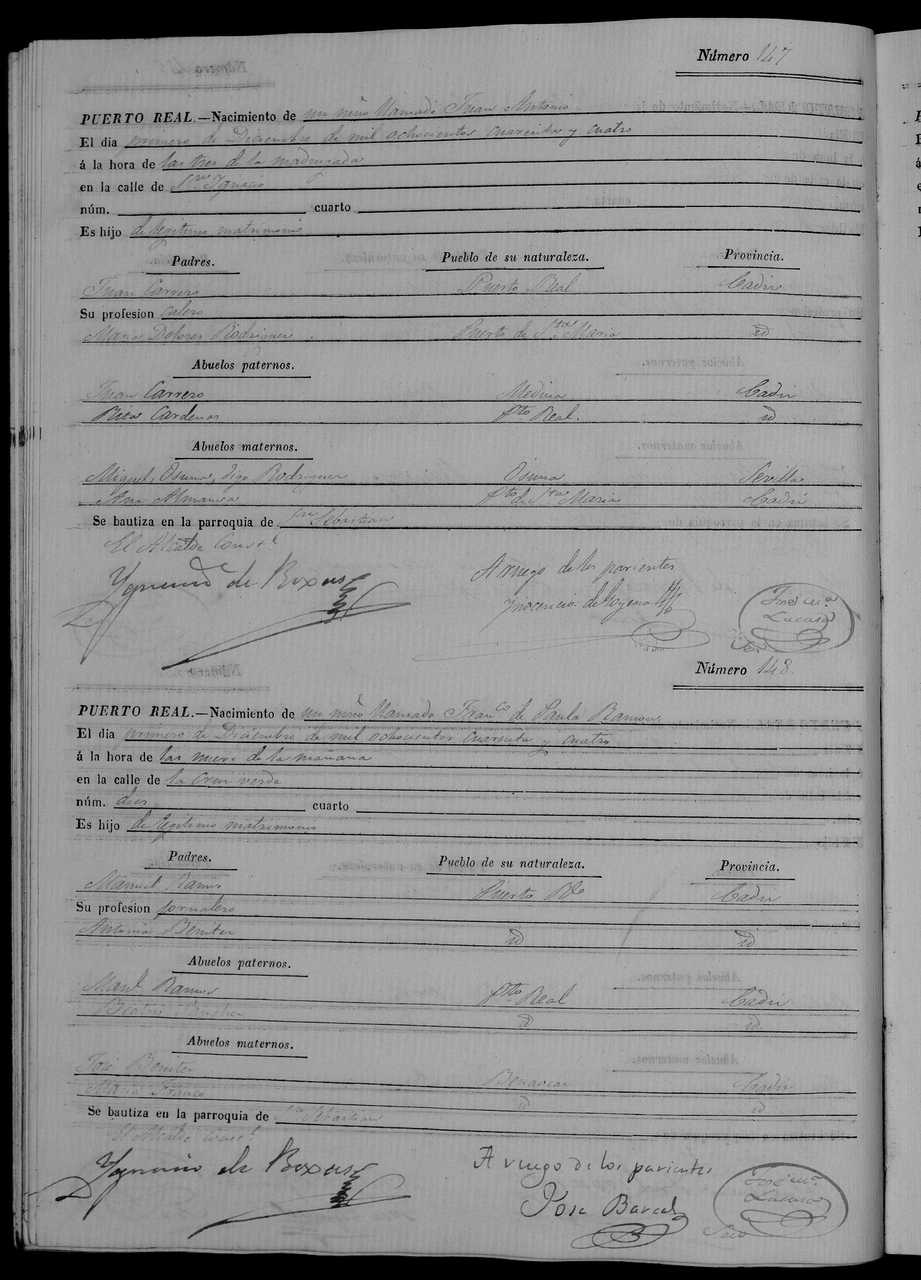 Número 147
PUERTO REAL.—Nacimiento de un niño llamado Juan Antonio
El dia primero de Diciembre de mil ochocientos cuarenta y cuatro
á la hora de las tres de la madrugada
en la calle de Sn Ygnacio
núm. cuarto
Es hijo de legitimo matrimonio
Padres. Pueblo de su naturaleza. Provincia.
Juan Carrero Puerto Real Cadiz
Su profesion calero
Maria Dolores Rodriguez Puerto de Sta Maria id
Abuelos paternos.
Juan Carrero Medina Cadiz
Rita Cardenas Pto Real. id
Abuelos maternos.
Miguel Osuna, digo Rodriguez Osuna Sevilla
Ana Almansa Pto de Sta Maria Cadiz
Se bautiza en la parroquia de Sn Sebastian
El Alcalde Const.l
Ygnacio de Boxas
A ruego de los parientes
Ynocencio de
José Ma
Lucas
Número 148.
PUERTO REAL.—Nacimiento de un niño llamado Franco de Paula Ramon
El dia primero de Diciembre de mil ochocientos cuarenta y cuatro
á la hora de las nueve de la mañana
en la calle de la Cruz verde
núm. dos cuarto
Es hijo de legitimo matrimonio
Padres. Pueblo de su naturaleza. Provincia.
Manuel Ramos Puerto Rl Cadiz
Su profesion jornalero
Antonia Benitez id id
Abuelos paternos.
Manl Ramos Pto Real Cadiz
Beatriz id id
Abuelos maternos.
José Benitez Cadiz
Maria Franco id id
Se bautiza en la parroquia de Sn Sebastian
El Alcalde Const.l
Ygnacio de Boxas
A ruego de los parientes
José
José Ma
Lucas
Srio